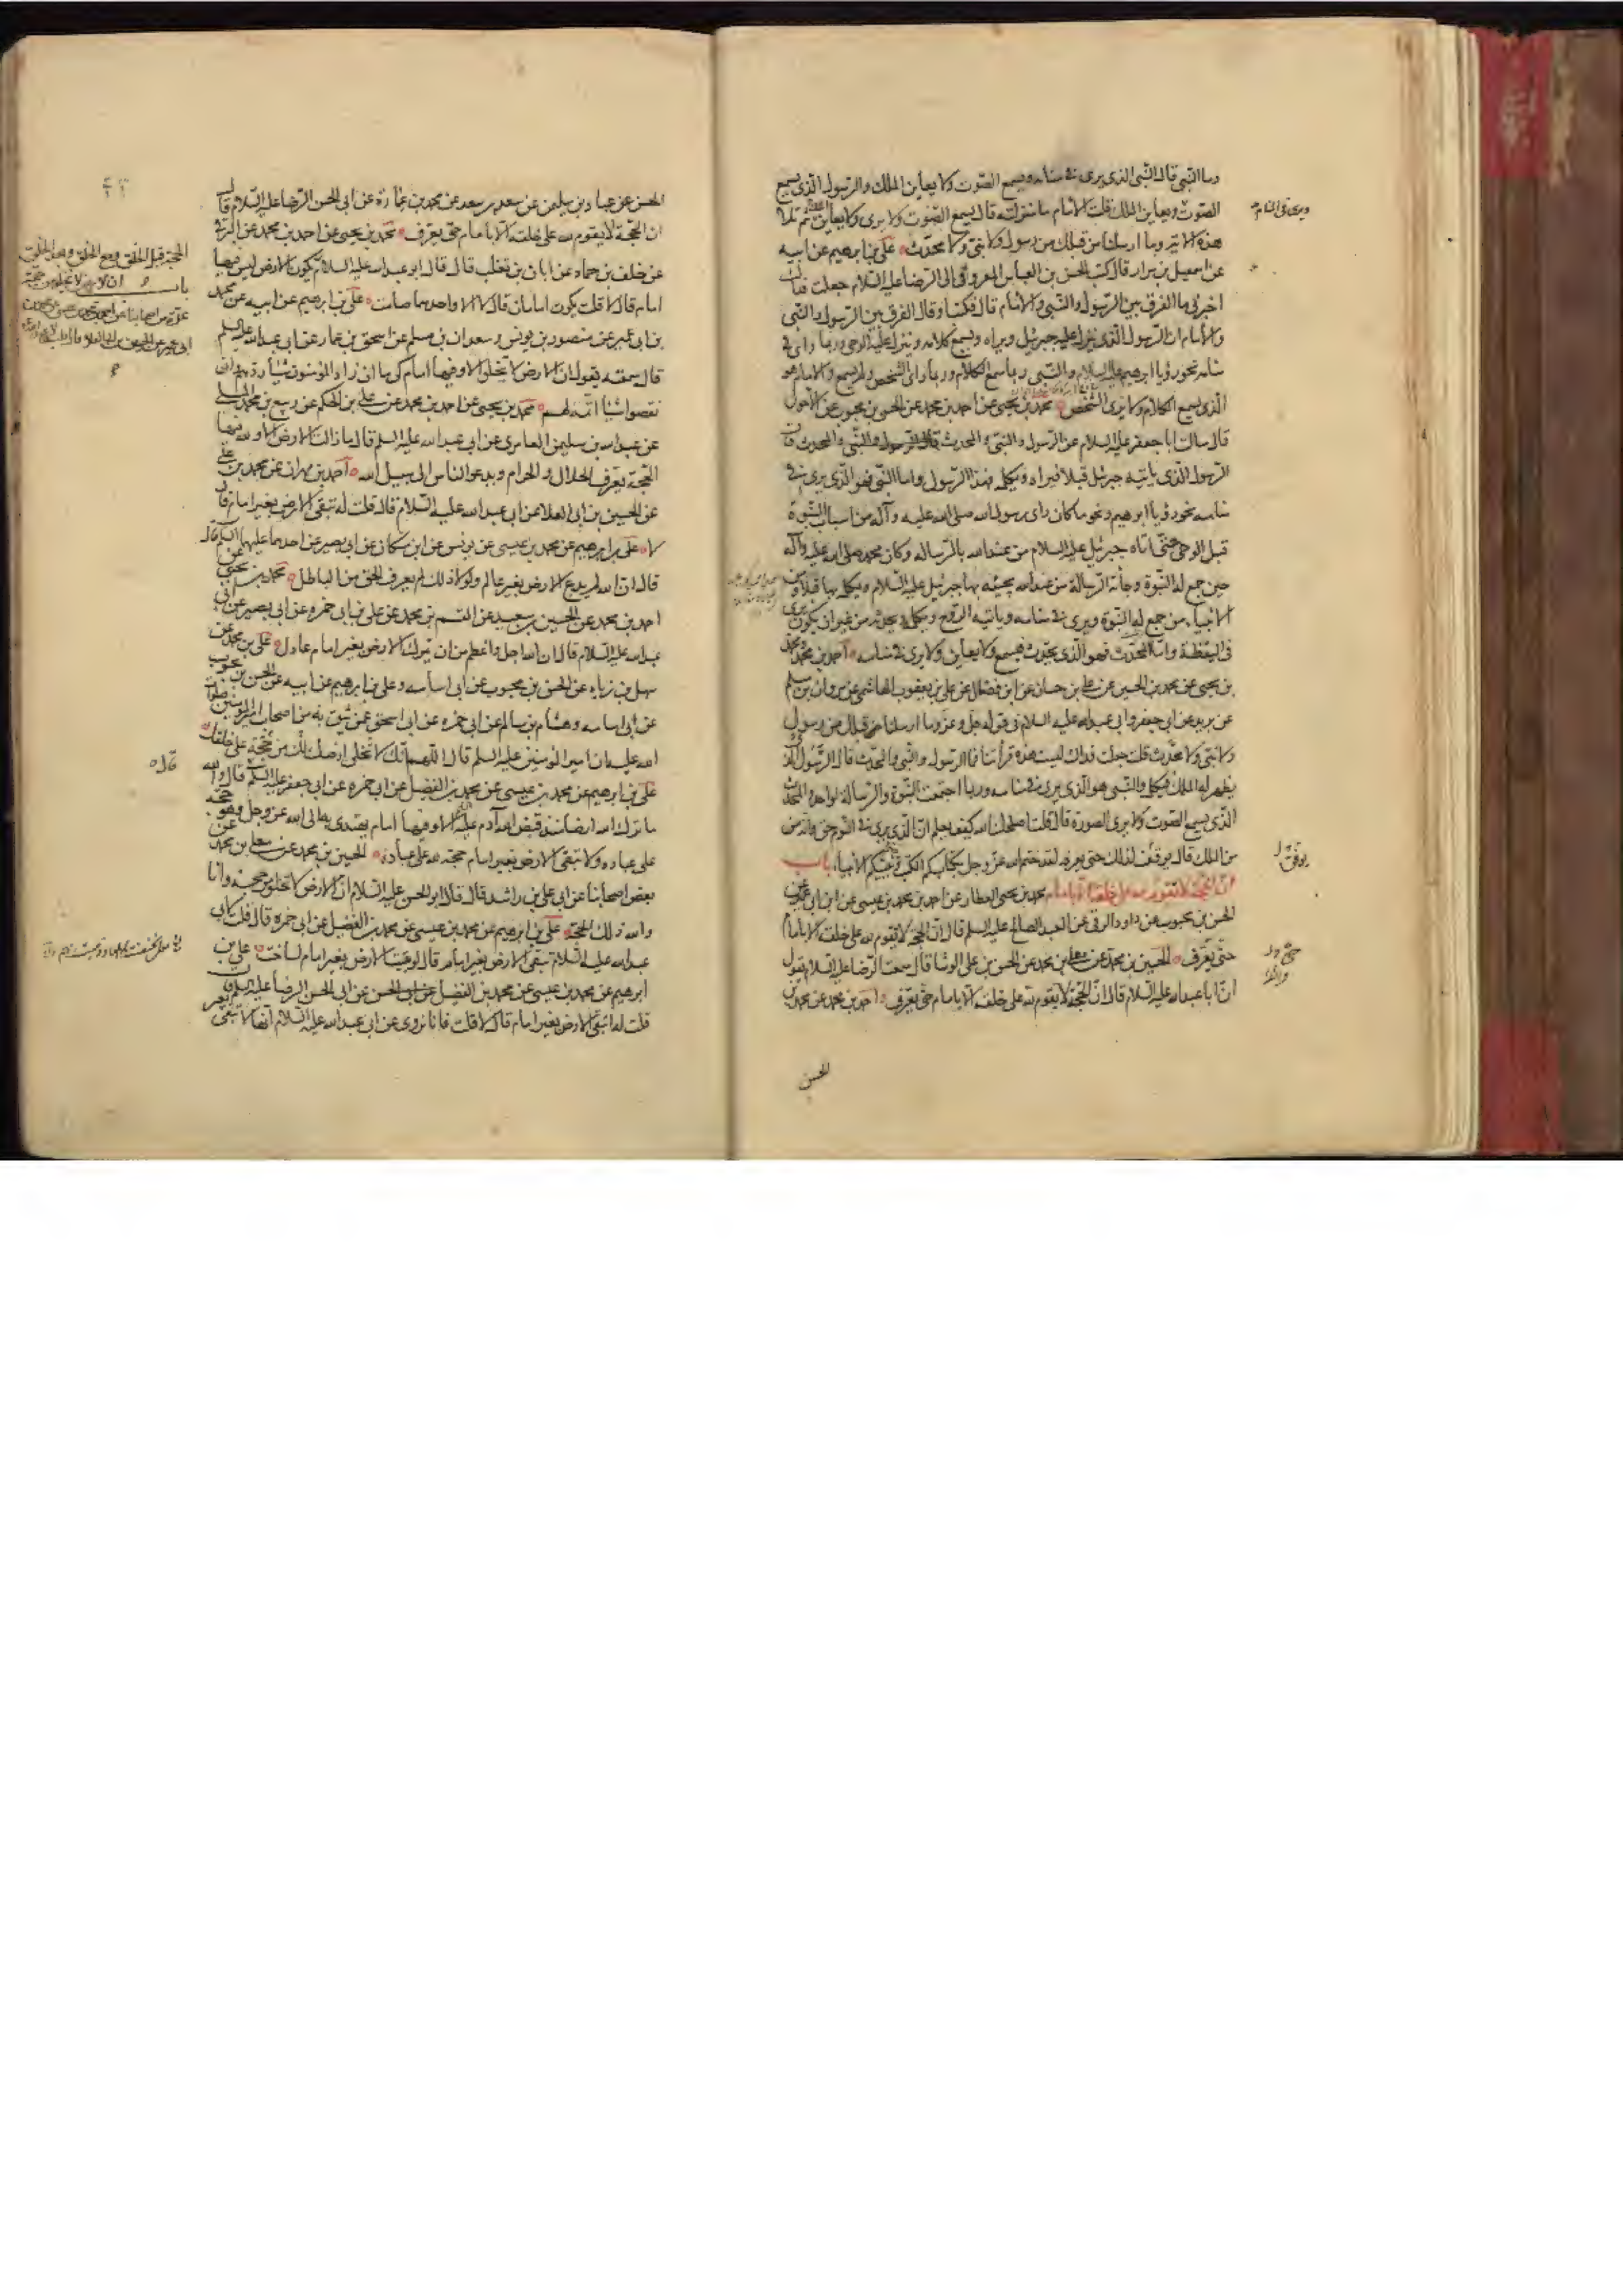 وما النبى قال النبى الذى يرى فى منامه ويسمع الصوت ولا يعاين الملك والرسول الذى يسمع
الصوت ويعاين الملك قلت الامام ما منزلته قال يسمع الصوت ولا يرى ولا يعاين ثم تلا
هذه الاية وما ارسلنا من قبلك من رسول ولا نبى ولا محدث علىّ بن ابرهيم عن ابيه
عن اسمعيل بن مرار قال كتب الحسن بن العباس المعروفى الى الرضا عليه السلام جعلت فداك
اخبرنى ما الفرق بين الرسول والنبى والامام قال فكتب او قال الفرق بين الرسول والنبى
والامام ان الرسول الذى ينزل عليه جبرئيل ويراه ويسمع كلامه وينزل عليه الوحى وربما راى فى
منامه نحو رؤيا ابرهيم عليه السلام والنبى ربما سمع الكلام وربما راى الشخص ولم يسمع والامام هو
الذى يسمع الكلام ولا يرى الشخص محمد بن يحيى عن احمد بن محمد عن الحسن بن محبوب عن الاحول
قال سالت ابا جعفر عليه السلام عن الرسول والنبى والمحدث قال الرسول والنبى والمحدث قال
الرسول الذى ياتيه جبرئيل قبلا فيراه ويكلمه فهذا الرسول واما النبى فهو الذى يرى فى
منامه نحو رؤيا ابرهيم ونحو ما كان راى رسول الله صلى الله عليه وآله من اسباب النبوة
قبل الوحى حتى اتاه جبرئيل عليه السلام من عند الله بالرساله وكان محمد صلى الله عليه وآله
حين جمع له النبوة وجائه الرسالة من عند الله يجيئه بها جبرئيل عليه السلام ويكلمه بها قبلا ومن
الانبياء من جمع له النبوة ويرى فى منامه وياتيه الروح ويكلمه ويحدثه من غير ان يكون يرى
فى اليقظة واما المحدث فهو الذى يحدث فيسمع ولا يعاين ولا يرى فى منامه احمد بن محمد ومحمد
بن يحيى عن محمد بن الحسين عن على بن حسان عن ابن فضال عن على بن يعقوب الهاشمى عن مروان بن مسلم
عن بريد عن ابى جعفر وابى عبد الله عليه السلام فى قوله جل وعز وما ارسلنا من قبلك من رسول
ولا نبى ولا محدث قلت جعلت فداك ليست هذه قرائتنا فما الرسول والنبى والمحدث قال الرسول الذى
يظهر له الملك فيكلمه والنبى هو الذى يرى فى منامه وربما اجتمعت النبوة والرسالة لواحد والمحدث
الذى يسمع الصوت ولا يرى الصورة قال قلت اصلحك الله كيف يعلم ان الذى يرى فى النوم حق وانه من
من الملك قال يوفق لذلك حتى يعرفه لقد ختم الله عز وجل بكتابكم الكتب وبنبيكم الانبياء باب
ان الحجة لا تقوم لله على خلقه الا بامام محمد بن يحيى العطار عن احمد بن محمد بن عيسى عن ابن ابى عمير عن
الحسن بن محبوب عن داود الرقى عن العبد الصالح عليه السلم قال ان الحجة لا يقوم لله على خلقه الا بامام
حتى يعرف الحسين بن محمد عن معلى بن محمد عن الحسن بن على الوشا قال سمعت الرضا عليه السلام يقول
ان ابا عبد الله عليه السلام قال ان الحجة لا يقوم لله على خلقه الا بامام حتى يعرف احمد بن محمد عن محمد بن
الحسن
الحسن عن عباد بن سليمن عن سعد بن سعد عن محمد بن عمارة عن ابى الحسن الرضا عليه السلام قال
ان الحجة لا يقوم لله على خلقه الا بامام حتى يعرف محمد بن يحيى عن احمد بن محمد عن البرقى
عن خلف بن حماد عن ابان بن تغلب قال قال ابو عبد الله عليه السلام تكون الارض ليس فيها
امام قال لا قلت يكون امامان قال لا الا واحدهما صامت على بن ابرهيم عن ابيه عن محمد
بن ابى عمير عن منصور بن يونس وسعدان بن مسلم عن اسحق بن عمار عن ابى عبد الله عليه السلم
قال سمعته يقول ان الارض لا تخلوا الا وفيها امام كى ما ان زاد المؤمنون شيئا ردهم وان
نقصوا شيئا اتمه لهم محمد بن يحيى عن احمد بن محمد عن على بن الحكم عن ربيع بن محمد المسلى
عن عبد الله بن سليمن العامرى عن ابى عبد الله عليه السلم قال ما زالت الارض الا ولله فيها
الحجة يعرف الحلال والحرام ويدعو الناس الى سبيل الله احمد بن مهران عن محمد بن على
عن الحسين بن ابى العلا عن ابى عبد الله عليه السلام قال قلت له تبقى الارض بغير امام قال
لا على بن ابرهيم عن محمد بن عيسى عن يونس عن ابن مسكان عن ابى بصير عن احدهما عليهما السلام قال
قال ان الله لم يدع الارض بغير عالم ولولا ذلك لم يعرف الحق من الباطل محمد بن يحيى عن
احمد بن محمد عن الحسين بن سعيد عن القسم بن محمد عن على بن ابى حمزه عن ابى بصير عن ابى
عبد الله عليه السلام قال ان الله اجل واعظم من ان يترك الارض بغير امام عادل على بن محمد عن
سهل بن زياد عن الحسن بن محبوب عن ابى اسامه وعلى بن ابرهيم عن ابيه عن الحسن بن محبوب
عن ابى اسامه وهشام بن سالم عن ابى حمزه عن ابى اسحق عمن يثق به من اصحاب امير المؤمنين صلوات
الله عليه ان امير المؤمنين عليه السلم قال اللهم انك لا تخلى ارضك لك من حجة على خلقك
على بن ابرهيم عن محمد بن عيسى عن محمد بن الفضيل عن ابى حمزه عن ابى جعفر عليه السلم قال والله
ما ترك الله ارضا منذ قبض الله آدم عليه السلم الا وفيها امام يهتدى به الى الله عز وجل وهو حجته
على عباده ولا تبقى الارض بغير امام حجة لله على عباده الحسين بن محمد عن معلى بن محمد عن
بعض اصحابنا عن ابى على بن راشد قال قال ابو الحسن عليه السلام ان الارض لا تخلو من حجة وانا
والله ذلك الحجة على بن ابرهيم عن محمد بن عيسى عن محمد بن الفضيل عن ابى حمزه قال قلت لابى
عبد الله عليه السلام تبقى الارض بغير امام قال لو بقيت الارض بغير امام لساخت على بن
ابرهيم عن محمد بن عيسى عن محمد بن الفضيل عن ابى الحسن الرضا عليه السلم قال
قلت له اتبقى الارض بغير امام قال لا قلت فانا نروى عن ابى عبد الله عليه السلام انها لا تبقى
الحجة قبل الخلق ومع الخلق وبعد الخلق
باب ان الارض لا تخلو من حجة
قال